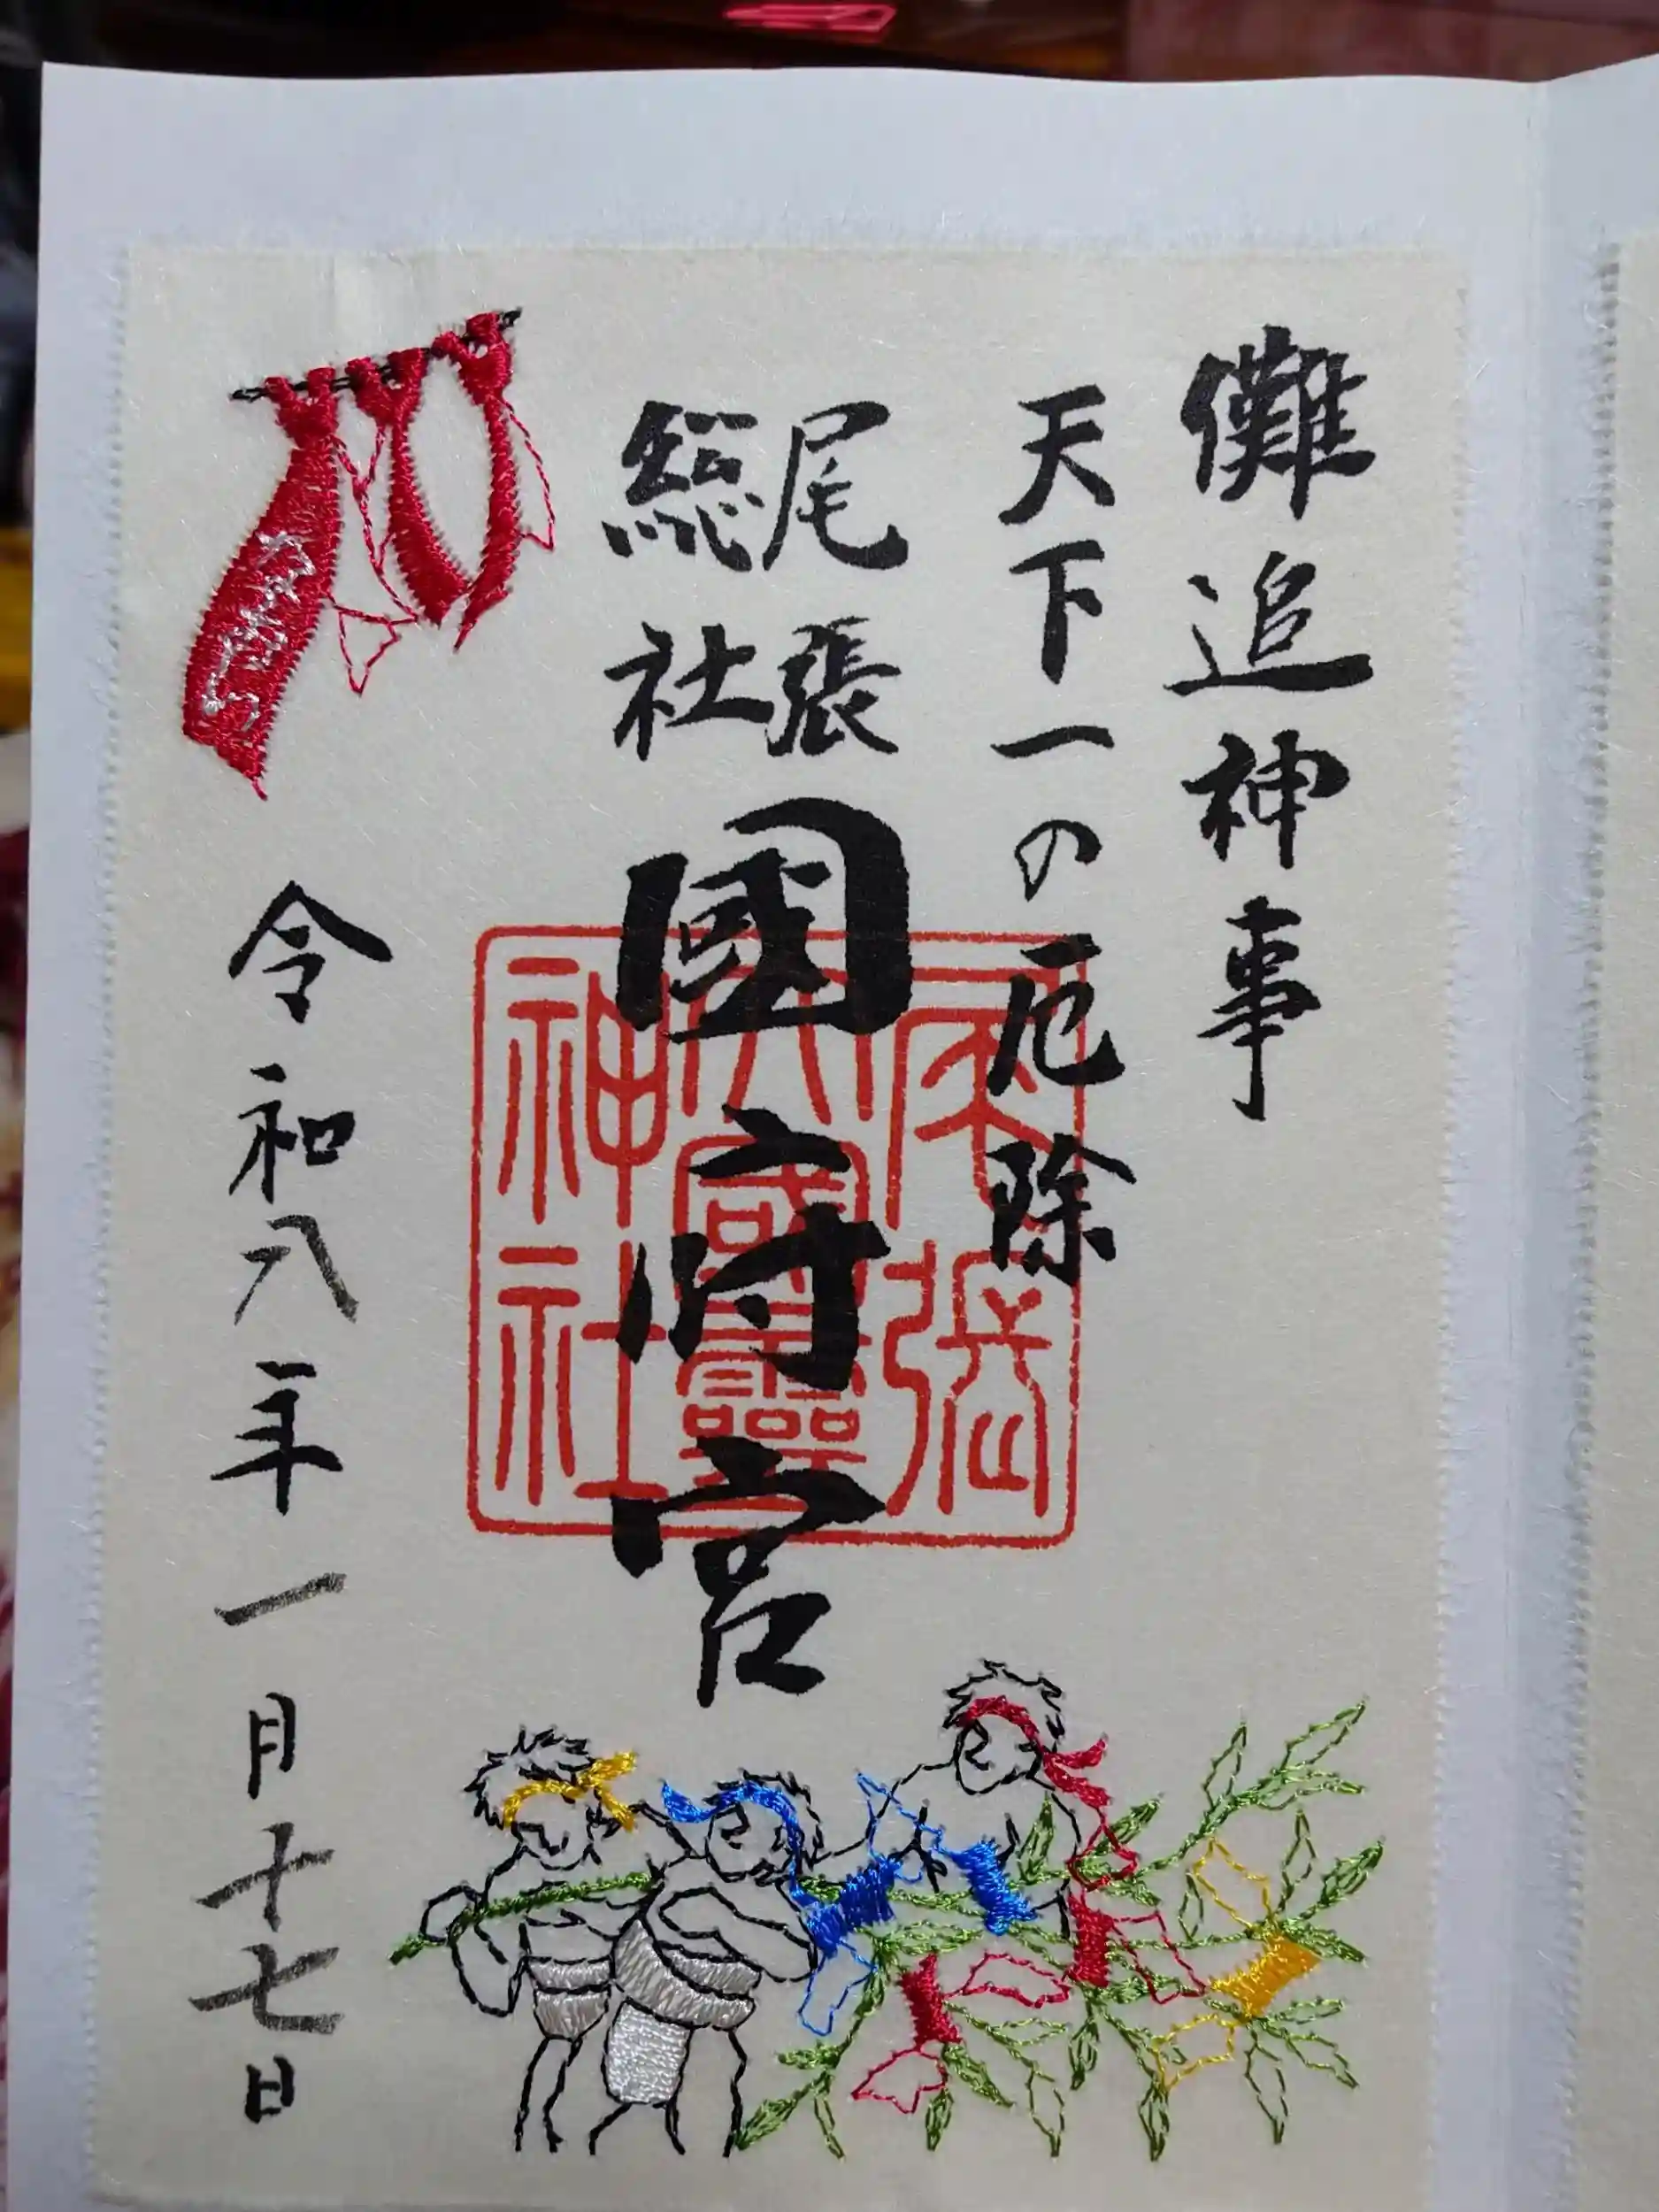 儺追神事
天下一の厄除
尾張
総社
國府宮
尾張
大國霊
神社
令和八年一月十七日